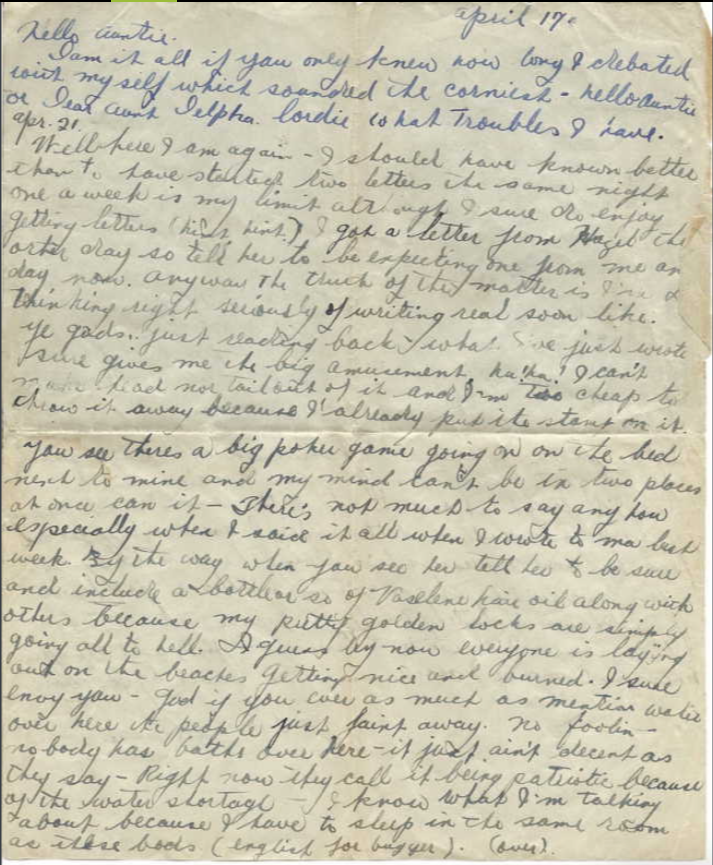 april 17.
Hello auntie.
I am it all if you only knew how long I debated
with myself which sounded the corniest - hello auntie
or Dear Aunt Delpha. Lordie what troubles I have.
apr. 21.
Well here I am again - I should have known better
than to have started two letters the same night
one a week is my limit although I sure do enjoy
getting letters (hint, hint.) I got a letter from Hazel the
other day so tell her to be expecting one from me an
day now. anyway the truth of the matter is I'm a
thinking right seriously of writing real soon like.
Ye gads. just reading back - what I've just wrote
sure gives me the big amusement, ha! ha! I can't
make head nor tail out of it and I'm too cheap to
throw it away because I already put the stamp on it.
You see theres a big poker game going on on the bed
next to mine and my mind can't be in two places
at once can it - There's not much to say any how
especially when I said it all when I wrote to ma last
week. By the way when you see her tell her to be sure
and include a bottle or so of Vaselene hair oil along with
others because my pretty golden locks are simply
going all to hell. I guess by now everyone is laying
out on the beaches getting nice and burned. I sure
envy you - God if you ever as much as mention water
over here the people just faint away. no foolin -
nobody has baths over here - it just ain't decent as
they say - Right now they call it being patriotic because
of the water shortage - I know what I'm talking
about because I have to sleep in the same room
as these bods (english for bugger). (over).